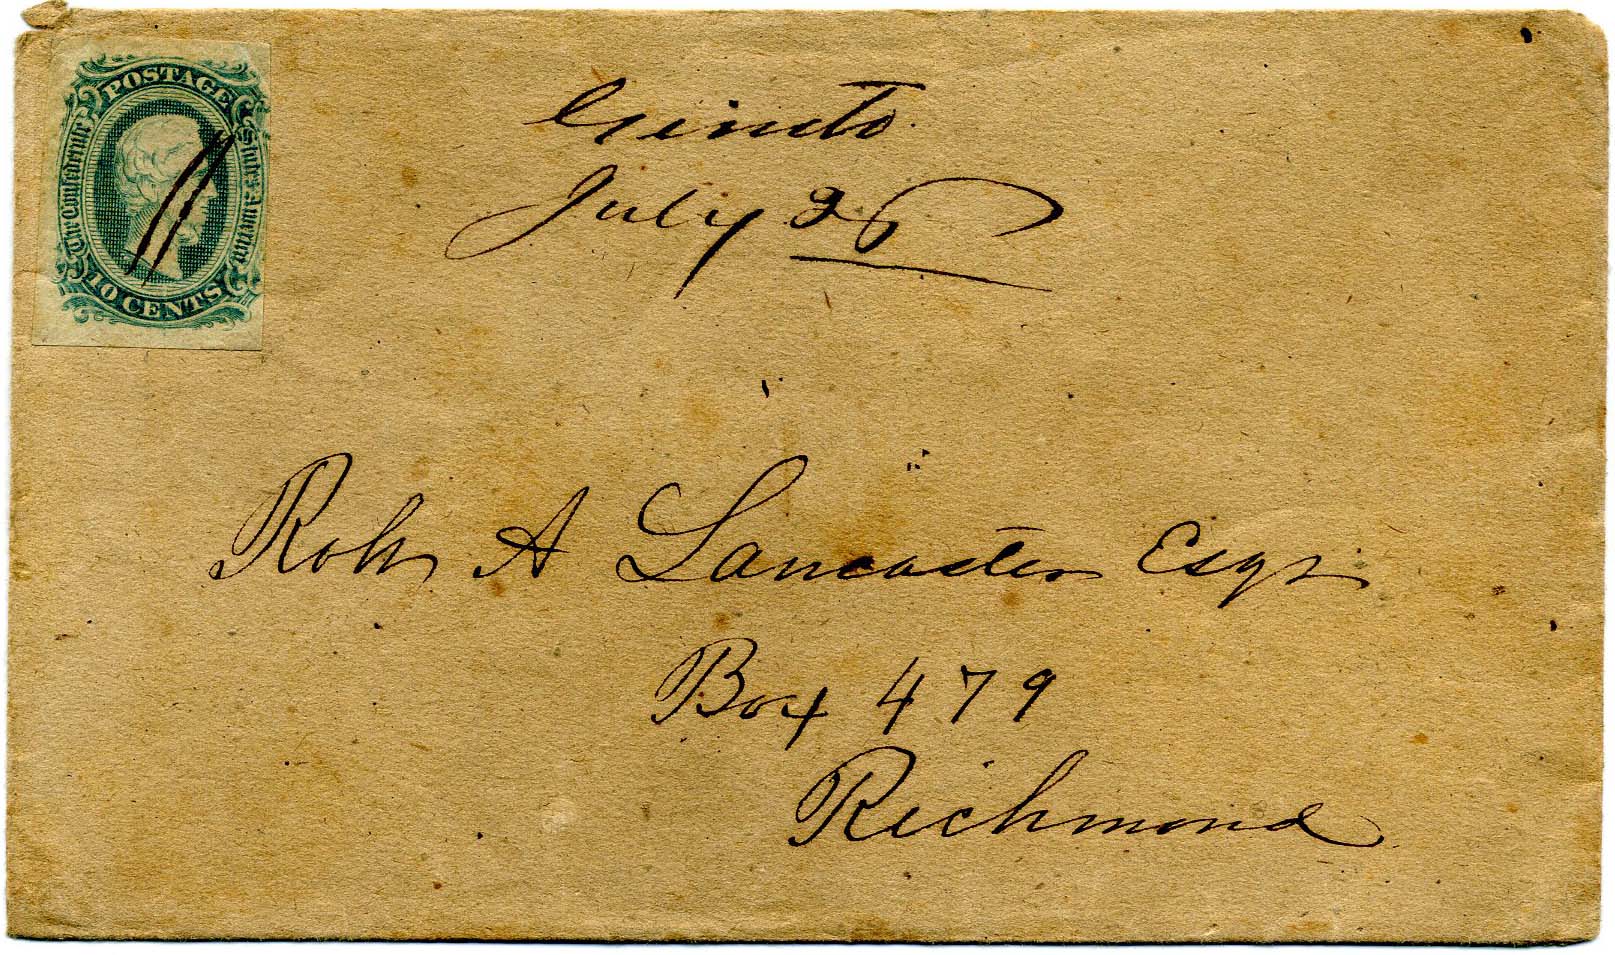 POSTAGE
The Confederate
States of America
10 CENTS
Genito
July 26
Robt A Lancaster Esqr
Box 479
Richmond